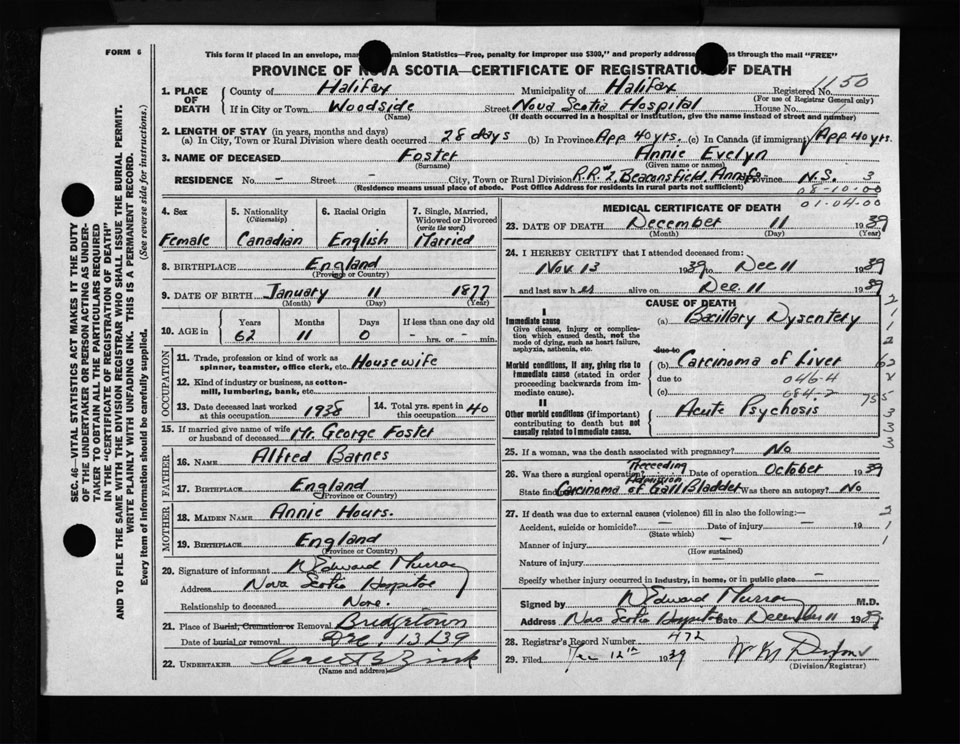 FORM 6
This form if placed in an envelope, ma Dominion Statistics—Free, penalty for improper use $300," and properly addresse ss through the mail "FREE"
PROVINCE OF NOVA SCOTIA—CERTIFICATE OF REGISTRATION OF DEATH
1. PLACE OF DEATH
County of Halifax Municipality of Halifax Registered No. 1150
(For use of Registrar General only)
If in City or Town Woodside Street Nova Scotia Hospital House No.
(Name) (If death occurred in a hospital or institution, give the name instead of street and number)
2. LENGTH OF STAY (in years, months and days)
(a) In City, Town or Rural Division where death occurred 28 days (b) In Province App 40 yrs. (c) In Canada (if immigrant) App 40 yrs.
3. NAME OF DECEASED Foster Annie Evelyn
(Surname) (Given name or names)
RESIDENCE No. - Street - City, Town or Rural Division R.R. #2, Beaconsfield, Annap Province N.S. 3
(Residence means usual place of abode. Post Office Address for residents in rural parts not sufficient)
08-10-00
01-04-00
4. Sex
Female
5. Nationality
(Citizenship)
Canadian
6. Racial Origin
English
7. Single, Married, Widowed or Divorced
(write the word)
Married
8. BIRTHPLACE England
(Province or Country)
9. DATE OF BIRTH January 11 1877
(Month) (Day) (Year)
10. AGE in
Years Months Days If less than one day old
62 11 0 - hrs. or min.
OCCUPATION
11. Trade, profession or kind of work as spinner, teamster, office clerk, etc. Housewife
12. Kind of industry or business, as cotton-mill, lumbering, bank, etc.
13. Date deceased last worked at this occupation 1938
14. Total yrs. spent in this occupation 40
15. If married give name of wife or husband of deceased Mr. George Foster
FATHER
16. NAME Alfred Barnes
17. BIRTHPLACE England
(Province or Country)
MOTHER
18. MAIDEN NAME Annie Hours.
19. BIRTHPLACE England
(Province or Country)
20. Signature of informant N Edward Murray
Address Nova Scotia Hospital
Relationship to deceased None.
21. Place of Burial, Cremation or Removal Bridgetown
Date of burial or removal Dec. 13/39
22. UNDERTAKER
(Name and address)
MEDICAL CERTIFICATE OF DEATH
23. DATE OF DEATH December 11 1939
(Month) (Day) (Year)
24. I HEREBY CERTIFY that I attended deceased from:
Nov. 13 1939 to Dec 11 1939
and last saw her alive on Dec. 11 1939
CAUSE OF DEATH
I
Immediate cause
Give disease, injury or complication which caused death, not the mode of dying, such as heart failure, asphyxia, asthenia, etc.
(a) Bacillary Dysentery
due to
Morbid conditions, if any, giving rise to immediate cause (stated in order proceeding backwards from immediate cause).
(b) Carcinoma of Liver
due to 046-4
(c) 084.2
II
Other morbid conditions (if important) contributing to death but not causally related to immediate cause.
Acute Psychosis
25. If a woman, was the death associated with pregnancy? No
26. Was there a surgical operation? Preceeding Admission Date of operation October 1939
State findings Carcinoma of Gall Bladder Was there an autopsy? No
27. If death was due to external causes (violence) fill in also the following:—
Accident, suicide or homicide? — Date of injury — 19
(State which)
Manner of injury —
(How sustained)
Nature of injury —
Specify whether injury occurred in industry, in home, or in public place —
Signed by N Edward Murray M.D.
Address Nova Scotia Hospital Date December 11 1939
28. Registrar's Record Number 472
29. Filed Dec 12th 1939
(Division/Registrar)
SEC. 46—VITAL STATISTICS ACT MAKES IT THE DUTY
OF THE UNDERTAKER OR PERSON ACTING AS UNDERTAKER TO OBTAIN ALL THE PARTICULARS REQUIRED
IN THE "CERTIFICATE OF REGISTRATION OF DEATH"
AND TO FILE THE SAME WITH THE DIVISION REGISTRAR WHO SHALL ISSUE THE BURIAL PERMIT.
WRITE PLAINLY WITH UNFADING INK. THIS IS A PERMANENT RECORD.
Every item of information should be carefully supplied. (See reverse side for instructions.)